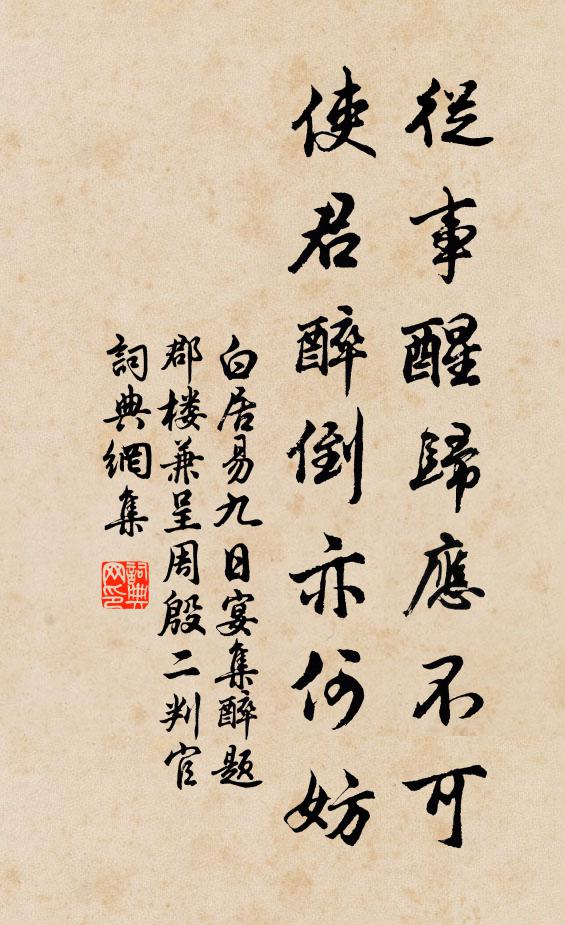 從事醒歸應不可
使君醉倒亦何妨
白居易九日宴集醉题
郡楼兼呈周殷二判官
詞典網集
詞典
网印